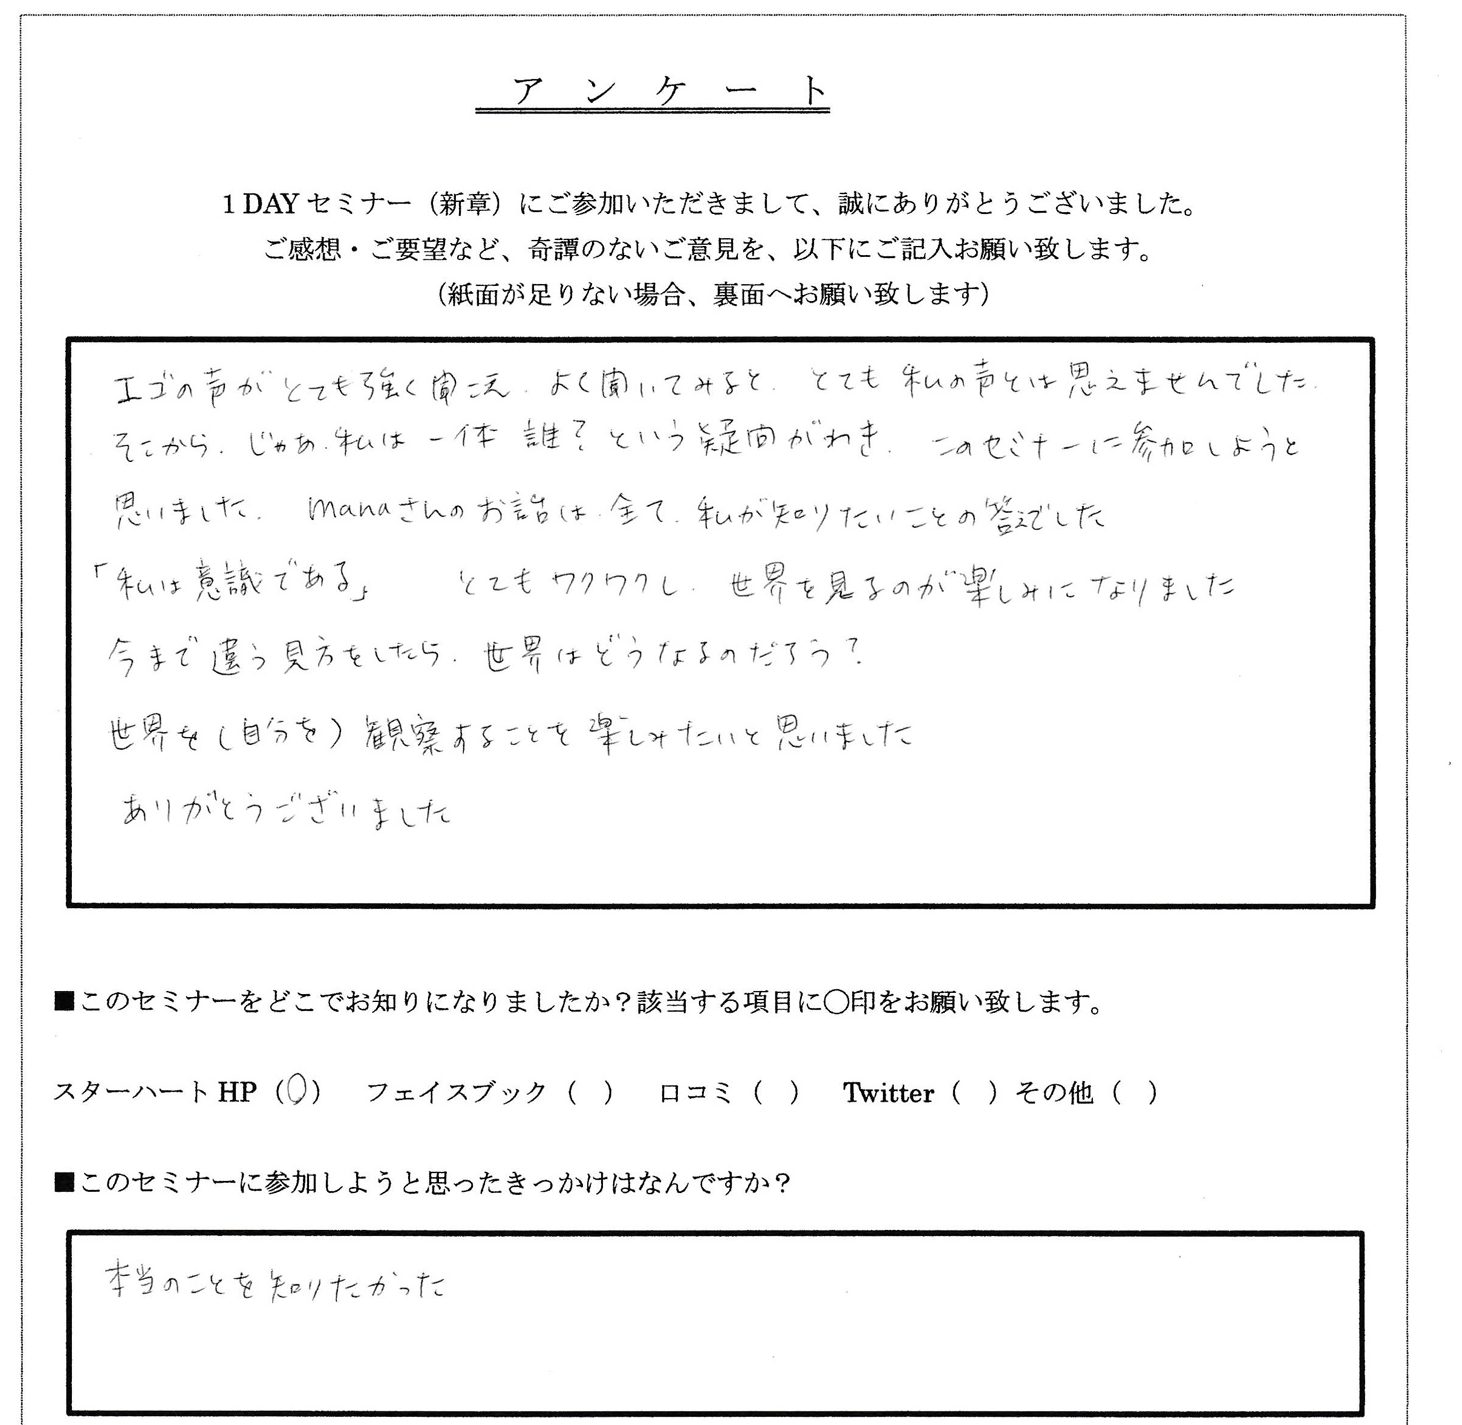 アンケート
1 DAY セミナー（新章）にご参加いただきまして、誠にありがとうございました。
ご感想・ご要望など、奇譚のないご意見を、以下にご記入お願い致します。
（紙面が足りない場合、裏面へお願い致します）
エゴの声がとても強く聞こえ、よく聞いてみると、とても私の声とは思えませんでした。
そこから、じゃあ、私は一体誰？という疑問がわき、このセミナーに参加しようと
思いました。manaさんのお話は、全て、私が知りたいことの答えでした
「私は意識である」　とてもワクワクし、世界を見るのが楽しみになりました
今まで違う見方をしたら、世界はどうなるのだろう？
世界を（自分を）観察することを楽しみたいと思いました
ありがとうございました
■このセミナーをどこでお知りになりましたか？該当する項目に〇印をお願い致します。
スターハート HP（〇）　フェイスブック（　）　口コミ（　）　Twitter（　）その他（　）
■このセミナーに参加しようと思ったきっかけはなんですか？
本当のことを知りたかった